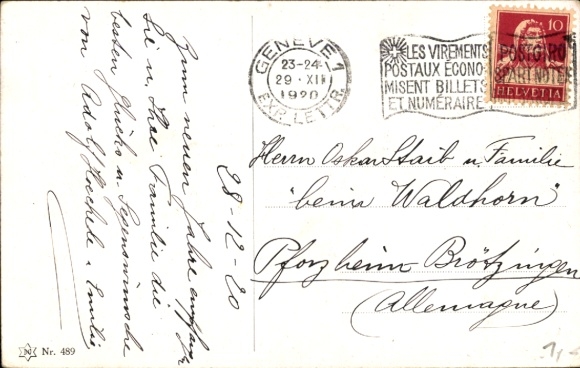 Zum neuen Jahre empfangen
Sie u. Ihre Familie die
besten Glücks u. Segenswünsche
von Adolf Haechele u. Familie
28-12-20
GENÈVE 1
23-24
29.XII
1920
EXP. LETTR.
LES VIREMENTS
POSTAUX ÉCONO-
MISENT BILLETS
ET NUMÉRAIRE
POSTGIRO
SPART NOTEN
10
HELVETIA
Herrn Oskar Staib u. Familie
"beim Waldhorn"
Pforzheim Brötzingen
(Allemagne)
Nr. 489